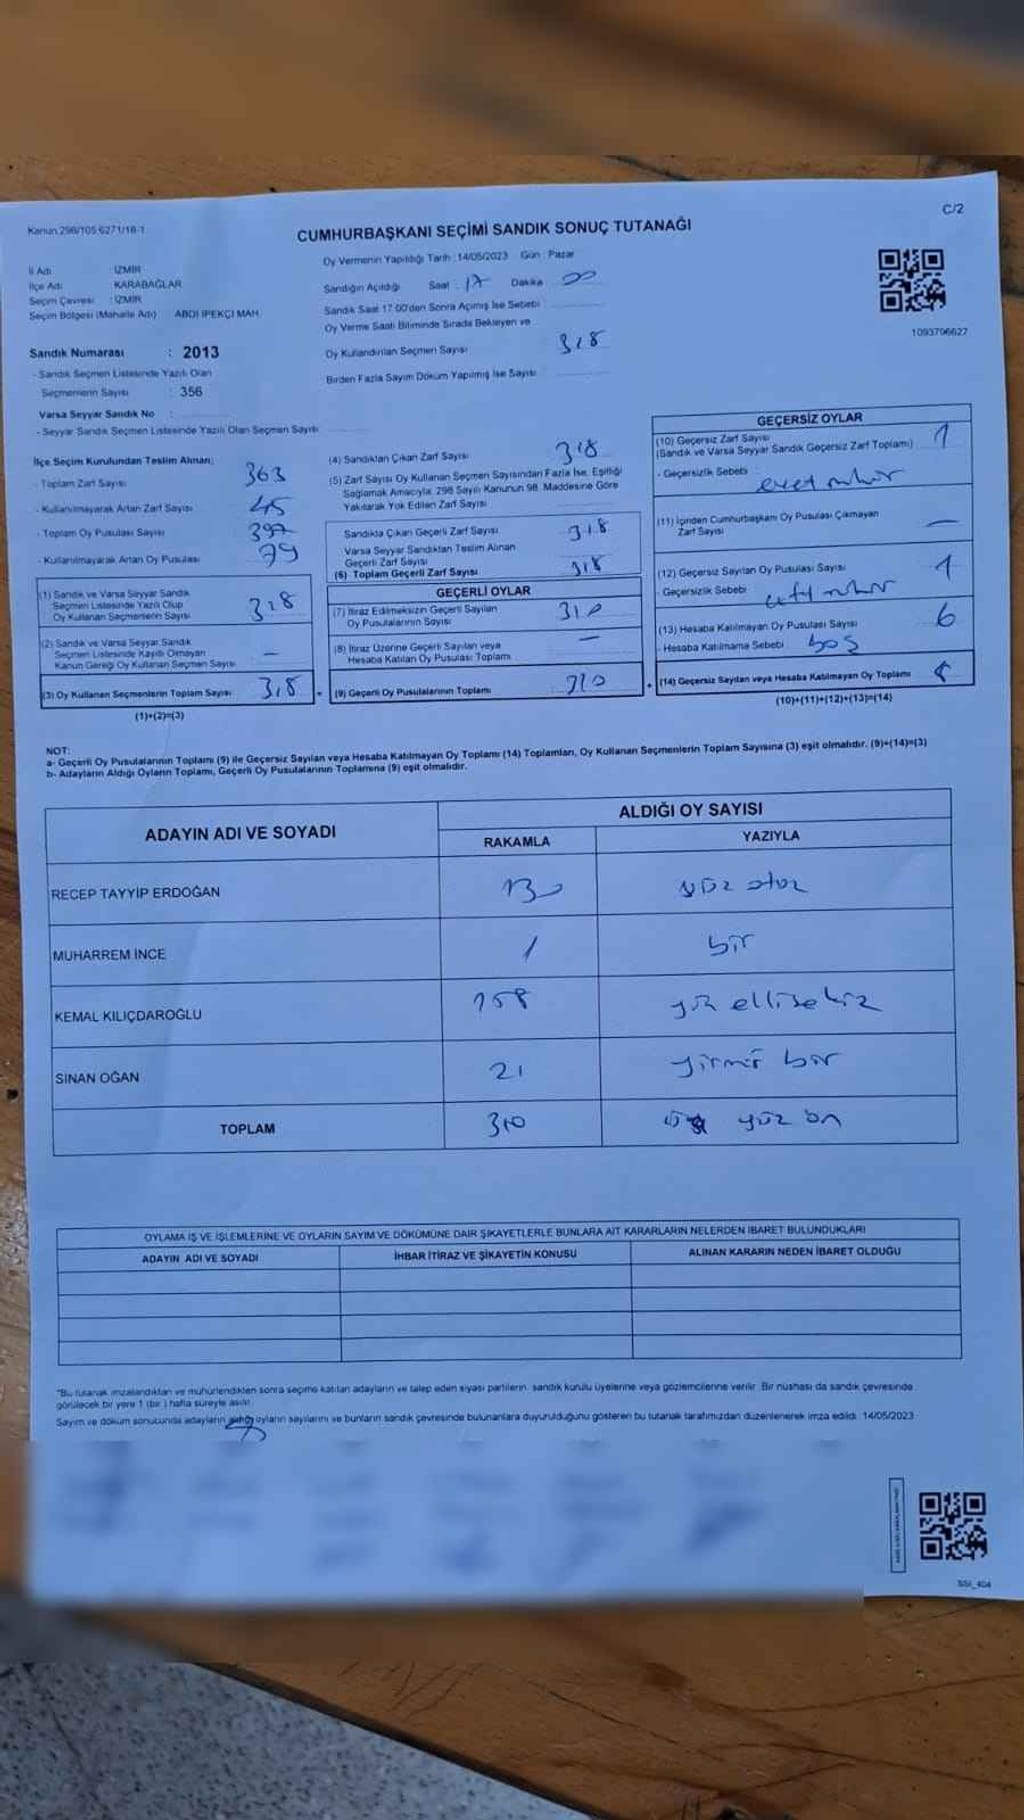 Kanun 298/105 6271/18-1
C/2
CUMHURBAŞKANI SEÇİMİ SANDIK SONUÇ TUTANAĞI
Oy Vermenin Yapıldığı Tarih : 14/05/2023 Gün : Pazar
İl Adı : İZMİR
İlçe Adı : KARABAĞLAR
Seçim Çevresi : İZMİR
Seçim Bölgesi (Mahalle Adı) ABDİ İPEKÇİ MAH.
Sandığın Açıldığı Saat : 17 Dakika : 00
Sandık Saat 17.00'den Sonra Açılmış İse Sebebi
Oy Verme Saati Bitiminde Sırada Bekleyen ve
Oy Kullandırılan Seçmen Sayısı 318
Birden Fazla Sayım Döküm Yapılmış İse Sayısı
1093796627
Sandık Numarası : 2013
- Sandık Seçmen Listesinde Yazılı Olan
Seçmenlerin Sayısı : 356
Varsa Seyyar Sandık No :
- Seyyar Sandık Seçmen Listesinde Yazılı Olan Seçmen Sayısı
İlçe Seçim Kurulundan Teslim Alınan;
- Toplam Zarf Sayısı 363
- Kullanılmayarak Artan Zarf Sayısı 45
- Toplam Oy Pusulası Sayısı 397
- Kullanılmayarak Artan Oy Pusulası 79
(1) Sandık ve Varsa Seyyar Sandık
Seçmen Listesinde Yazılı Olup
Oy Kullanan Seçmenlerin Sayısı 318
(2) Sandık ve Varsa Seyyar Sandık
Seçmen Listesinde Kayıtlı Olmayan
Kanun Gereği Oy Kullanan Seçmen Sayısı –
(3) Oy Kullanan Seçmenlerin Toplam Sayısı 318
(1)+(2)=(3)
(4) Sandıktan Çıkan Zarf Sayısı 318
(5) Zarf Sayısı Oy Kullanan Seçmen Sayısından Fazla İse, Eşitliği
Sağlamak Amacıyla, 298 Sayılı Kanunun 98. Maddesine Göre
Yakılarak Yok Edilen Zarf Sayısı
Sandıkta Çıkan Geçerli Zarf Sayısı 318
Varsa Seyyar Sandıktan Teslim Alınan
Geçerli Zarf Sayısı
(6) Toplam Geçerli Zarf Sayısı 318
GEÇERLİ OYLAR
(7) İtiraz Edilmeksizin Geçerli Sayılan
Oy Pusulalarının Sayısı 310
(8) İtiraz Üzerine Geçerli Sayılan veya
Hesaba Katılan Oy Pusulası Toplamı –
(9) Geçerli Oy Pusulalarının Toplamı 310
=
+
GEÇERSİZ OYLAR
(10) Geçersiz Zarf Sayısı
(Sandık ve Varsa Seyyar Sandık Geçersiz Zarf Toplamı) 1
- Geçersizlik Sebebi : evet mühür
(11) İçinden Cumhurbaşkanı Oy Pusulası Çıkmayan
Zarf Sayısı –
(12) Geçersiz Sayılan Oy Pusulası Sayısı 1
- Geçersizlik Sebebi mühür
(13) Hesaba Katılmayan Oy Pusulası Sayısı 6
- Hesaba Katılmama Sebebi boş
(14) Geçersiz Sayılan veya Hesaba Katılmayan Oy Toplamı 8
(10)+(11)+(12)+(13)=(14)
NOT:
a- Geçerli Oy Pusulalarının Toplamı (9) ile Geçersiz Sayılan veya Hesaba Katılmayan Oy Toplamı (14) Toplamları, Oy Kullanan Seçmenlerin Toplam Sayısına (3) eşit olmalıdır. (9)+(14)=(3)
b- Adayların Aldığı Oyların Toplamı, Geçerli Oy Pusulalarının Toplamına (9) eşit olmalıdır.
ADAYIN ADI VE SOYADI
ALDIĞI OY SAYISI
RAKAMLA YAZIYLA
RECEP TAYYİP ERDOĞAN 130 yüz otuz
MUHARREM İNCE 1 bir
KEMAL KILIÇDAROĞLU 158 yüz ellisekiz
SİNAN OĞAN 21 yirmi bir
TOPLAM 310 üç yüz on
OYLAMA İŞ VE İŞLEMLERİNE VE OYLARIN SAYIM VE DÖKÜMÜNE DAİR ŞİKAYETLERLE BUNLARA AİT KARARLARIN NELERDEN İBARET BULUNDUKLARI
ADAYIN ADI VE SOYADI İHBAR İTİRAZ VE ŞİKAYETİN KONUSU ALINAN KARARIN NEDEN İBARET OLDUĞU
*Bu tutanak imzalandıktan ve mühürlendikten sonra seçime katılan adayların ve talep eden siyasi partilerin, sandık kurulu üyelerine veya gözlemcilerine verilir. Bir nüshası da sandık çevresinde
görülecek bir yere 1 (bir ) hafta süreyle asılır.
Sayım ve döküm sonucunda adayların aldığı oyların sayılarını ve bunların sandık çevresinde bulunanlara duyurulduğunu gösteren bu tutanak tarafımızdan düzenlenerek imza edildi. 14/05/2023
SSI_404